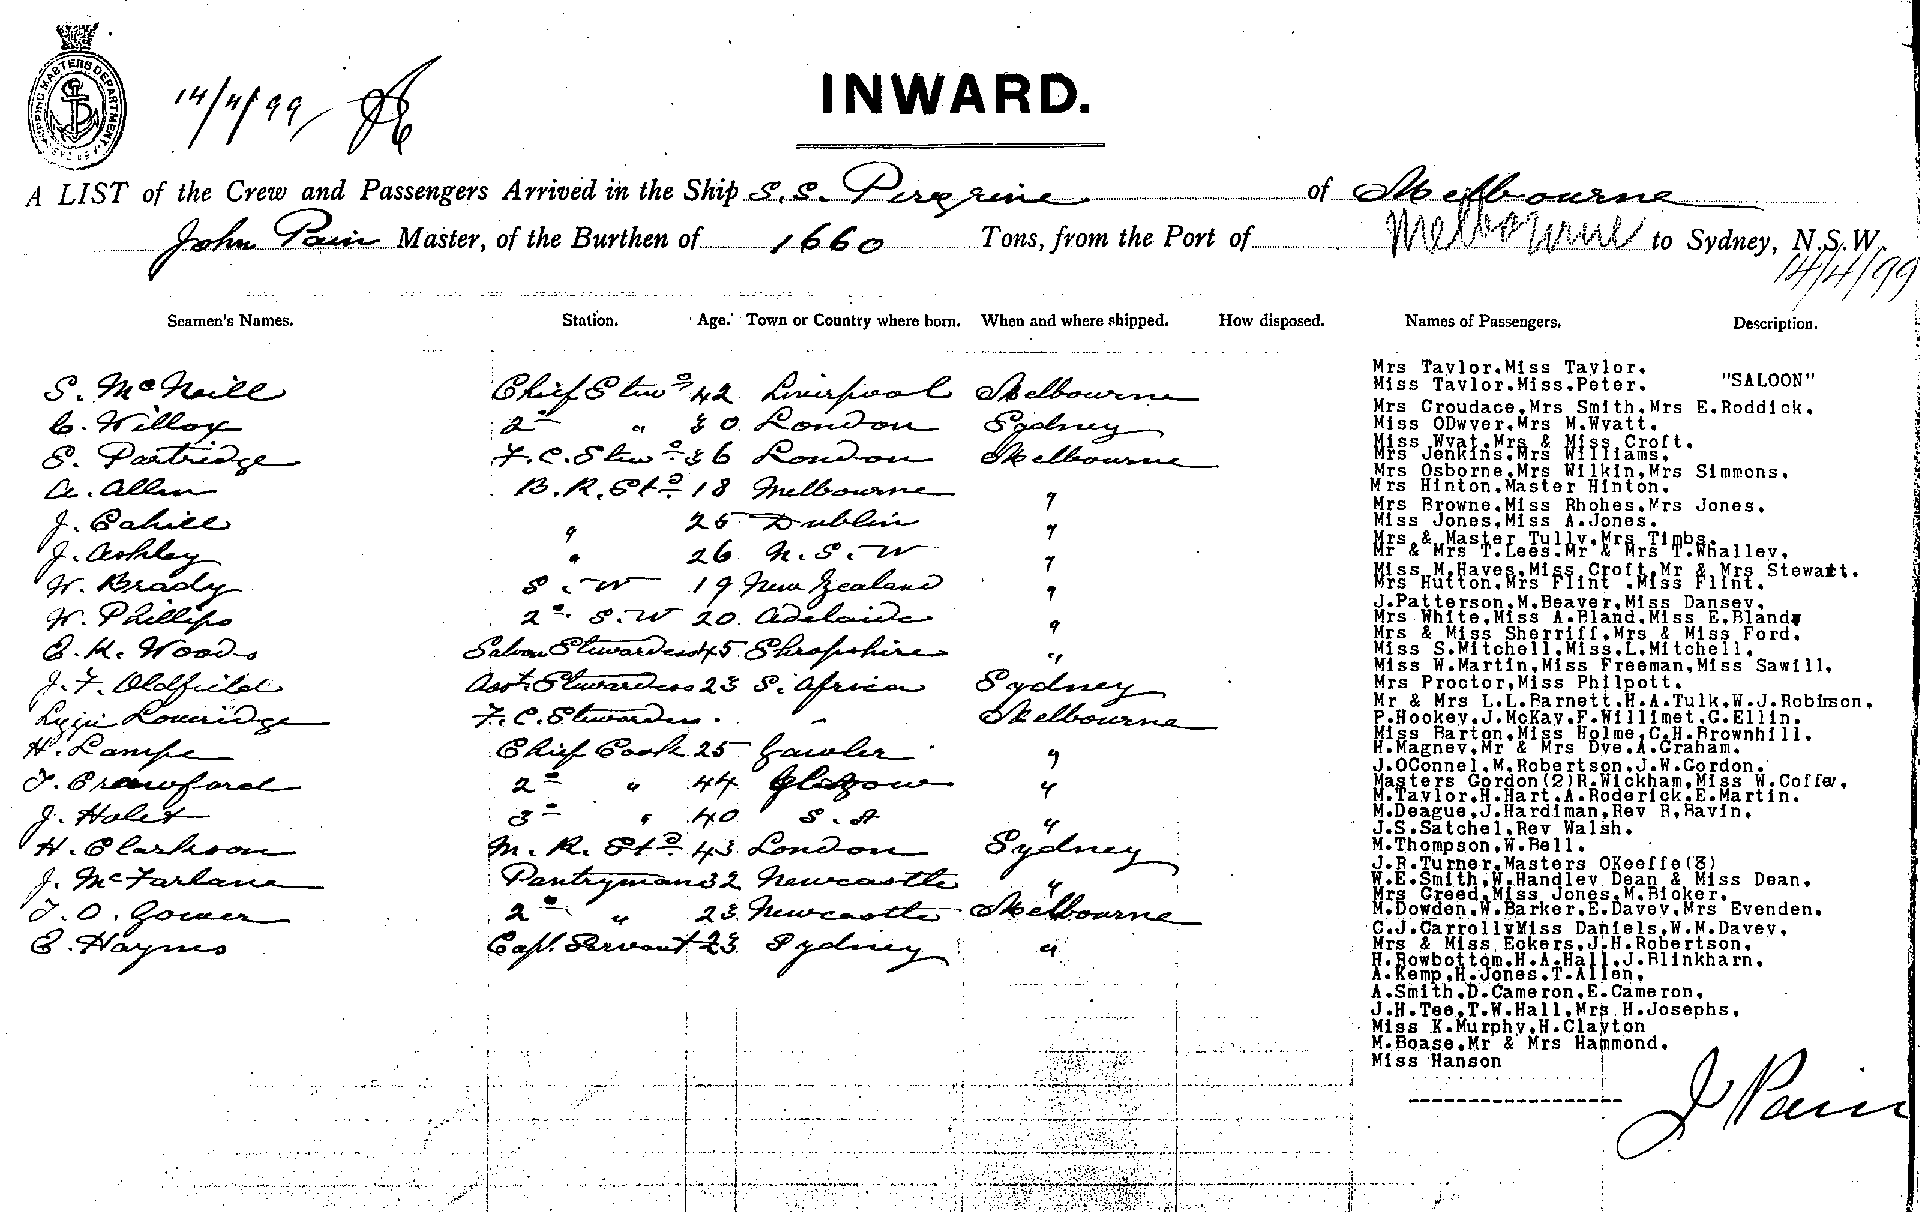 SHIPPING MASTERS DEPARTMENT
14/4/99
INWARD.
A LIST of the Crew and Passengers Arrived in the Ship S.S. Peregrine of Melbourne
John Pain Master, of the Burthen of 1660 Tons, from the Port of Melbourne to Sydney, N.S.W.
14/4/99
Seamen's Names. Station. Age. Town or Country where born. When and where shipped. How disposed. Names of Passengers. Description.
S. McNeill Chief Stwd 42 Liverpool Melbourne
C. Willox 2nd " 30 London Sydney
S. Partridge F.C. Stwd 36 London Melbourne
A. Allen B.R. Std 18 Melbourne "
J. Cahill " 25 Dublin "
J. Ashley " 26 N.S.W "
W. Brady S.W 19 New Zealand "
W. Phillips 2nd S.W 20 Adelaide "
E.K. Woods Saloon Stewardess 45 Shropshire "
J.F. Oldfield Asst. Stewardess 23 S. Africa Sydney
Lizzie Loveridge F.C. Stewardess. - Melbourne
H. Lampe Chief Cook 25 Gawler "
T. Crawford 2nd " 44 Glasgow "
J. Holst 3rd " 40 S.A "
H. Clarkson M.R. Std 43 London Sydney
J. McFarlane Pantryman 32 Newcastle "
T.O. Gower 2nd " 23 Newcastle Melbourne
E. Haynes Capt. Servant 23 Sydney "
Mrs Taylor.Miss Taylor.
Miss Taylor.Miss.Peter. "SALOON"
Mrs Croudace,Mrs Smith,Mrs E.Roddick.
Miss ODwyer,Mrs M.Wyatt.
Miss Wyat,Mrs & Miss Croft.
Mrs Jenkins,Mrs Williams.
Mrs Osborne,Mrs Wilkin,Mrs Simmons.
Mrs Hinton,Master Hinton.
Mrs Browne,Miss Rhohes,Mrs Jones.
Miss Jones,Miss A.Jones.
Mrs & Master Tully,Mrs Timbs.
Mr & Mrs T.Lees.Mr & Mrs T.Whalley,
Miss M.Hayes,Miss Croft,Mr & Mrs Stewart.
Mrs Hutton,Mrs Flint .Miss Flint.
J.Patterson,M.Beaver,Miss Dansey,
Mrs White,Miss A.Bland,Miss E.Bland,
Mrs & Miss Sherriff,Mrs & Miss Ford.
Miss S.Mitchell,Miss.L.Mitchell,
Miss W.Martin,Miss Freeman,Miss Sawill,
Mrs Proctor,Miss Philpott.
Mr & Mrs L.L.Barnett,H.A.Tulk,W.J.Robinson,
P.Hookey,J.McKay,F.Willimet,G.Ellin.
Miss Barton,Miss Holme,C.H.Brownhill.
H.Magney,Mr & Mrs Dye.A.Graham.
J.OConnel,M.Robertson,J.W.Gordon.
Masters Gordon(2)R.Wickham,Miss W.Coffey,
M.Taylor.H.Hart.A.Roderick.E.Martin.
M.Deague,J.Hardiman,Rev R.Bavin,
J.S.Satchel,Rev Walsh.
M.Thompson,W.Bell.
J.R.Turner,Masters OKeeffe(3)
W.E.Smith,W.Handley Dean & Miss Dean,
Mrs Creed,Miss Jones,M.Bioker.
M.Dowden,W.Barker,E.Davey,Mrs Evenden.
C.J.Carroll,Miss Daniels,W.M.Davey,
Mrs & Miss Eckers,J.H.Robertson,
H.Rowbottom,H.A.Hall,J.Blinkharn,
A.Kemp,H.Jones.T.Allen,
A.Smith,D.Cameron,E.Cameron,
J.H.Tee,T.W.Hall,Mrs H.Josephs,
Miss K.Murphy,H.Clayton
M.Boase,Mr & Mrs Hammond.
Miss Hanson
J Pain